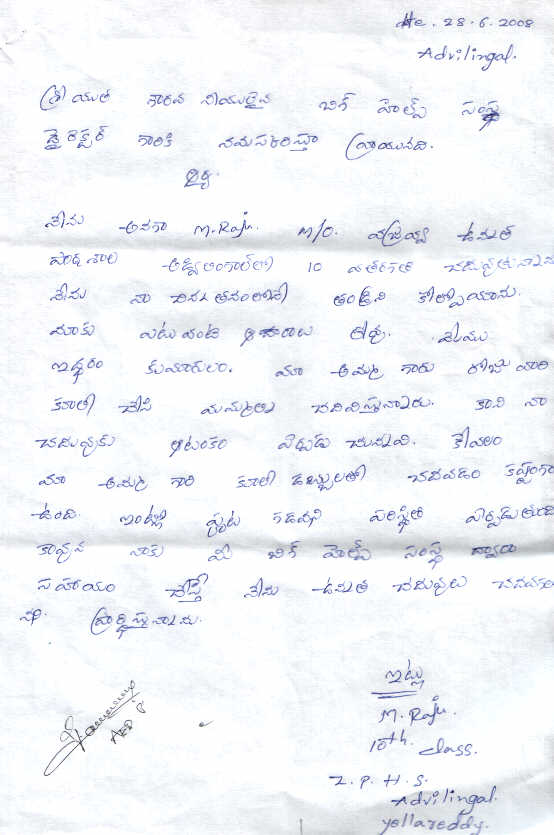 dte. 28.6.2008
Advilingal.
శ్రీ యుత గౌరవ నీయులైన బిగ్ హెల్ప్ సంస్థ
డైరెక్టర్ గారికి నమస్కరిస్తూ వ్రాయునది.
నేను అనగా M.Raju. M/O. ఉన్నత
పాఠశాల అడ్విలింగాల్‌లో 10 వ తరగతి చదువుతున్నాను
నేను నా చిన్న తనంలోనే తండ్రిని కోల్పోయాను.
మాకు ఎటువంటి ఆధారాలు లేవు. మేము
ఇద్దరం కుమారులం. మా అమ్మ గారు రోజు వారి
కూలి చేసి మమ్మలు చదివిస్తున్నారు. కాని నా
చదువుకు ఆటంకం ఏర్పడు చున్నది. కేవలం
మా అమ్మ గారి కూలి డబ్బులతో చదవడం కష్టంగా
ఉంది. ఇంట్లో పూట గడవని పరిస్థితి ఏర్పడుతుంది
కావున నాకు మీ బిగ్ హెల్ప్ సంస్థ ద్వారా
సహాయం చేస్తే నేను ఉన్నత చదువులు చదవగల
నని ప్రార్థిస్తున్నాను.
ఇట్లు
M. Raju.
10th. class.
Z.P.H.S.
Advilingal.
yellareddy.